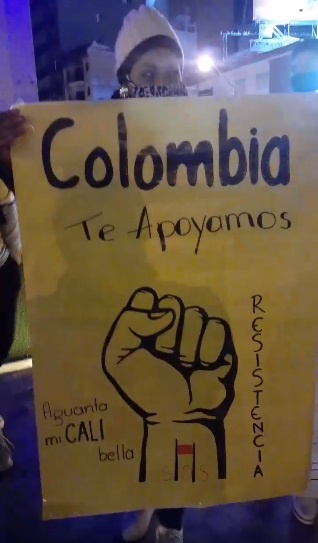 Colombia
Te Apoyamos
RESISTENCIA
Aguanta
mi CALI
bella
SOS